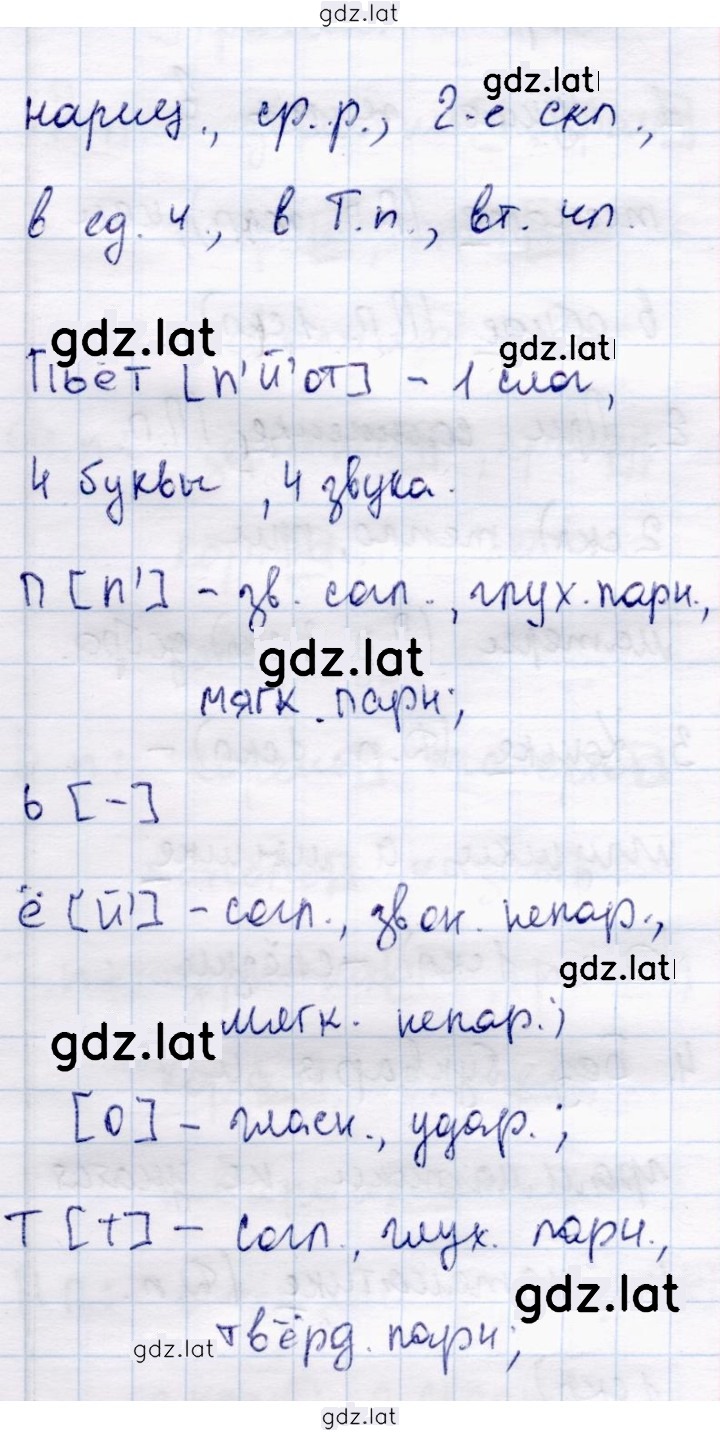 gdz.lat
gdz.lat
нариц., ср. р., 2-е скл.,
в ед. ч., в Т.п., вт. чл.
gdz.lat gdz.lat
Пьёт [п'й'от] - 1 слог,
4 буквы, 4 звука.
п [п'] - зв. согл., глух. парн.,
gdz.lat
мягк. парн.;
ь [-]
ё [й'] - согл., звон. непар.,
gdz.lat
мягк. непар.;
gdz.lat
[о] - гласн., удар.;
т [т] - согл., глух. парн.,
gdz.lat
твёрд. парн;
gdz.lat
gdz.lat